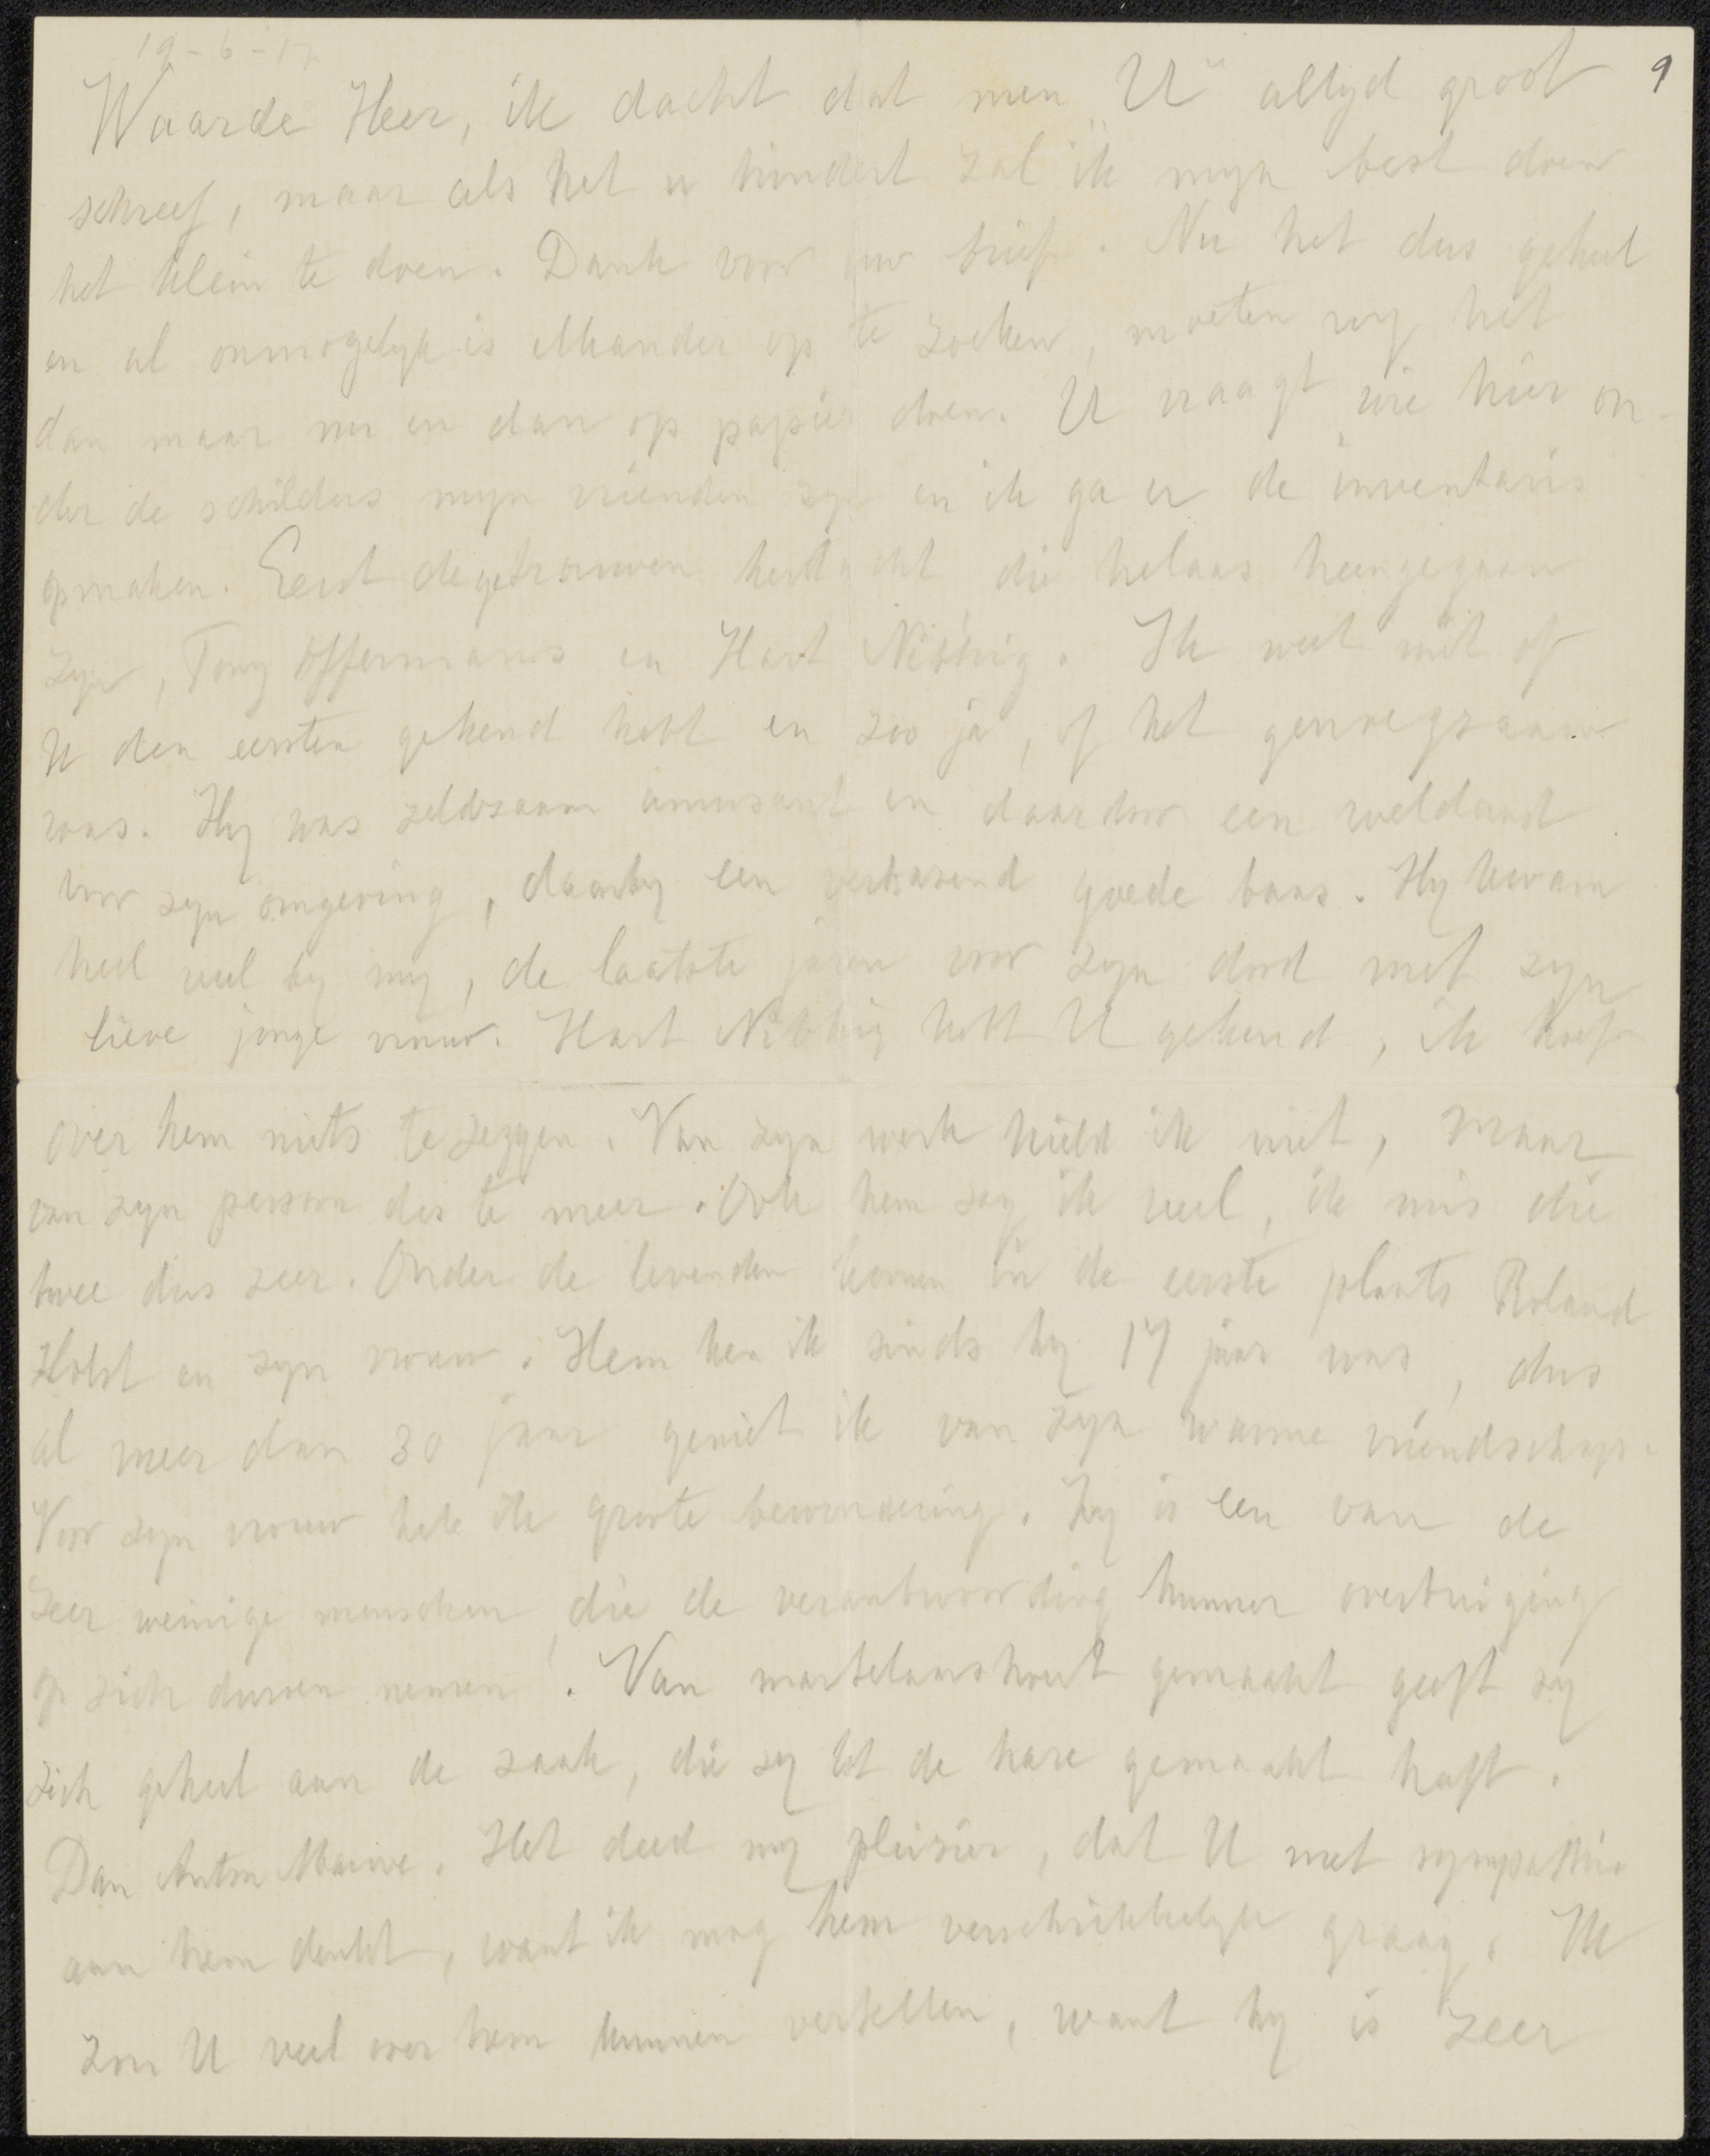 19-6-17
9
Waarde Heer, ik dacht dat men „U" altyd groot
schreef, maar als het u hindert zal ik myn best doen
het klein te doen. Dank voor uw brief. Nu het dus geheel
en al onmogelyk is elkander op te zoeken, moeten wy het
dan maar nu en dan op papier doen. U vraagt wie hier on-
der de schilders myn vrienden zyn en ik ga er de inventaris
opmaken. Eerst de getrouwen herdacht, die helaas heengegaan
zyn, Tony Offermans en Hart Nibbrig. Ik weet niet of
U den eersten gekend hebt en zoo ja, of het genoegzaam
was. Hy was zeldzaam amusant en daardoor een weldaad
voor zyn omgeving, daarby een verbazend goede baas. Hy kwam
heel veel by my, de laatste jaren voor zyn dood met zyn
lieve jonge vrouw. Hart Nibbrig hebt U gekend, ik hoef
over hem niets te zeggen. Van zyn werk hield ik niet, maar
van zyn persoon des te meer. Ook hem zag ik veel, ik mis die
twee dus zeer. Onder de levenden komen in de eerste plaats Roland
Holst en zyn vrouw. Hem ken ik sinds hy 17 jaar was, dus
al meer dan 30 jaar geniet ik van zyn warme vriendschap.
Voor zyn vrouw heb ik groote bewondering. Zy is een van de
zeer weinige menschen, die de verantwoording hunner overtuiging
op zich durven nemen. Van martelaarshout gemaakt geeft zy
zich geheel aan de zaak, die zy tot de hare gemaakt heeft.
Dan Anton Mauve. Het deed my pleizier, dat U met sympathie
aan hem denkt, want ik mag hem verschrikkelyk graag. Ik
zou U veel over hem kunnen vertellen, want hy is zeer